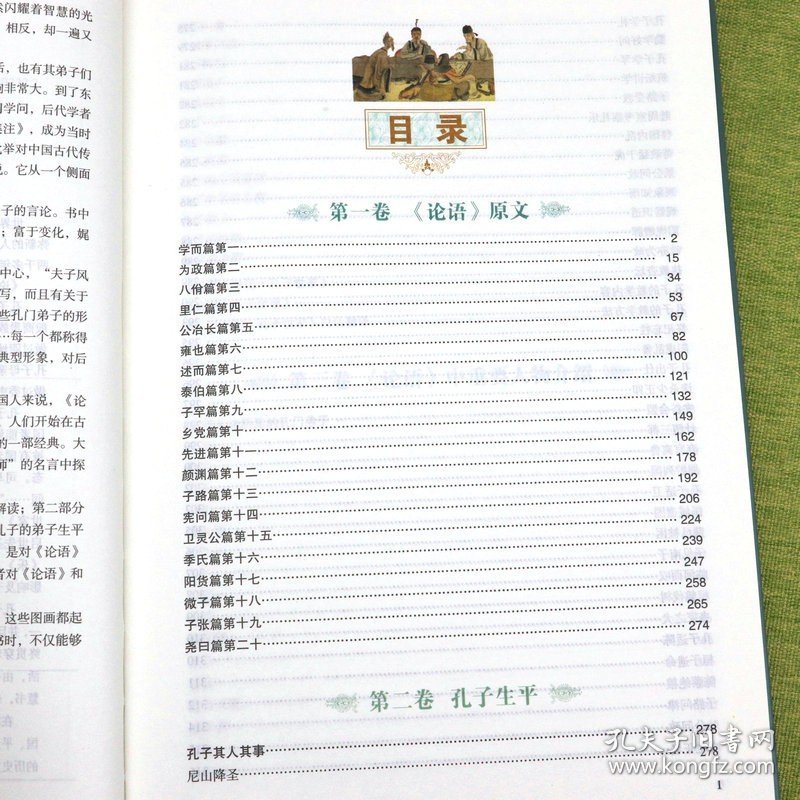 闪耀着智慧的光
相反，却一遍又
后，也有其弟子们
非常大。到了东
学问，后代学者
注》，成为当时
举对中国古代传
它从一个侧面
子的言论。书中
；富于变化，娓
中心，“夫子风
写，而且有关于
些孔门弟子的形
…每一个都称得
典型形象，对后
国人来说，《论
人们开始在古
的一部经典。大
师”的名言中探
解读；第二部分
孔子的弟子生平
是对《论语》
者对《论语》和
这些图画都起
书时，不仅能够
目录
第一卷 《论语》原文
学而篇第一 2
为政篇第二 15
八佾篇第三 34
里仁篇第四 53
公冶长篇第五 67
雍也篇第六 82
述而篇第七 100
泰伯篇第八 121
子罕篇第九 132
乡党篇第十 149
先进篇第十一 162
颜渊篇第十二 178
子路篇第十三 192
宪问篇第十四 206
卫灵公篇第十五 224
季氏篇第十六 239
阳货篇第十七 247
微子篇第十八 258
子张篇第十九 265
尧曰篇第二十 274
第二卷 孔子生平
孔子其人其事 278
尼山降圣 278
1
孔夫子旧书网
www.kongfz.com